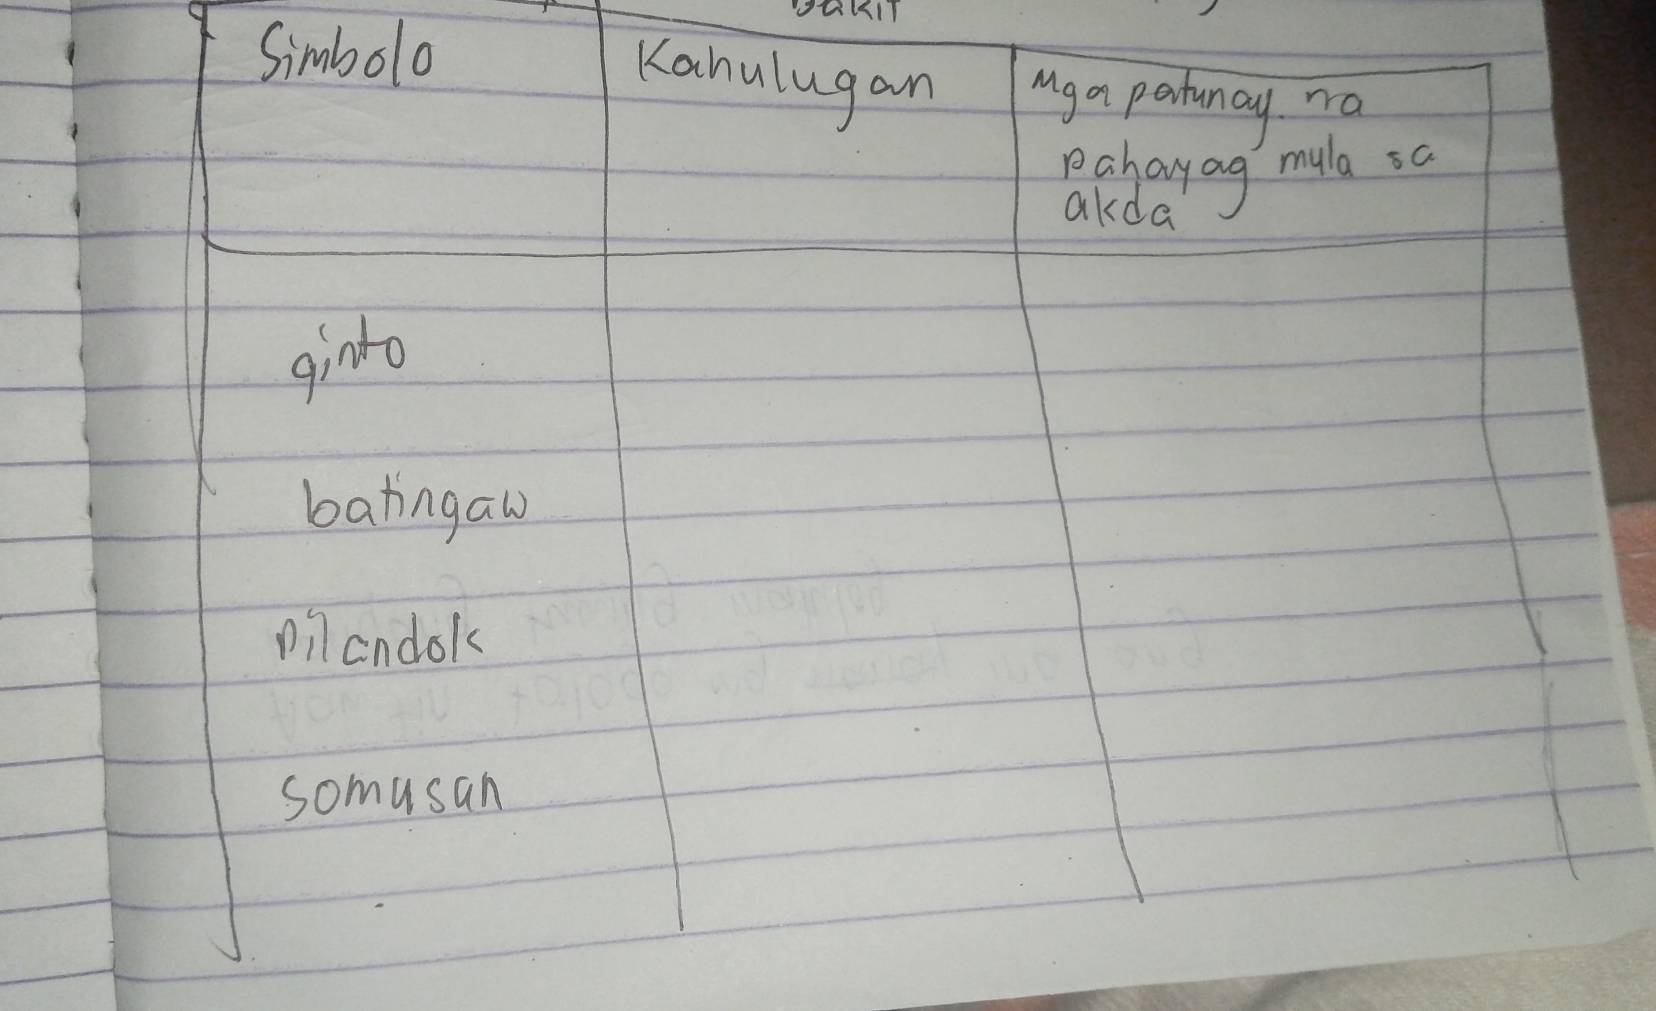 bakit
Simbolo
Kahulugan
Mga patunay na
pahayag mula sa
akda
ginto
batingaw
pilandok
somusan